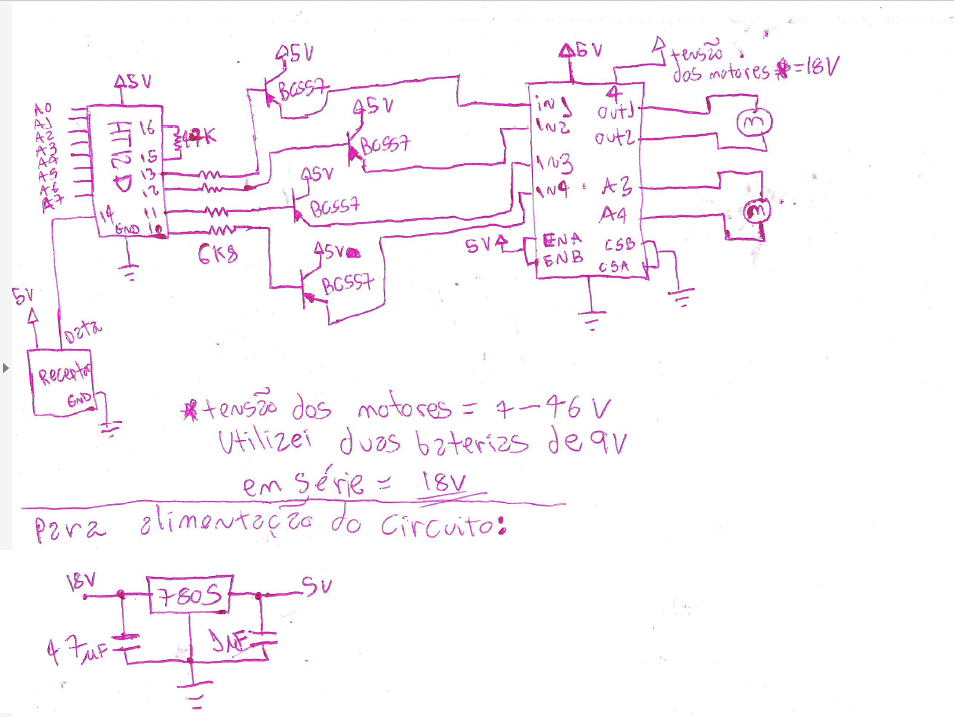 5V
5V
5V
tensão
dos motores *=18V
A0
A1
A2
A3
A4
A5
A6
A7
5V
HT12D
16
15
13
12
11
10
14
GND
BC557
5V
BC557
5V
BC557
5V
BC557
6K8
4
in1
IN2
IN3
IN4
5V
ENA
ENB
out1
out2
A3
A4
CSB
CSA
m
m
5V
Data
Receptor
GND
*tensão dos motores = 7-46V
Utilizei duas baterias de 9V
em série = 18V
Para alimentação do circuito:
18V
7805
5V
47uF
1uF